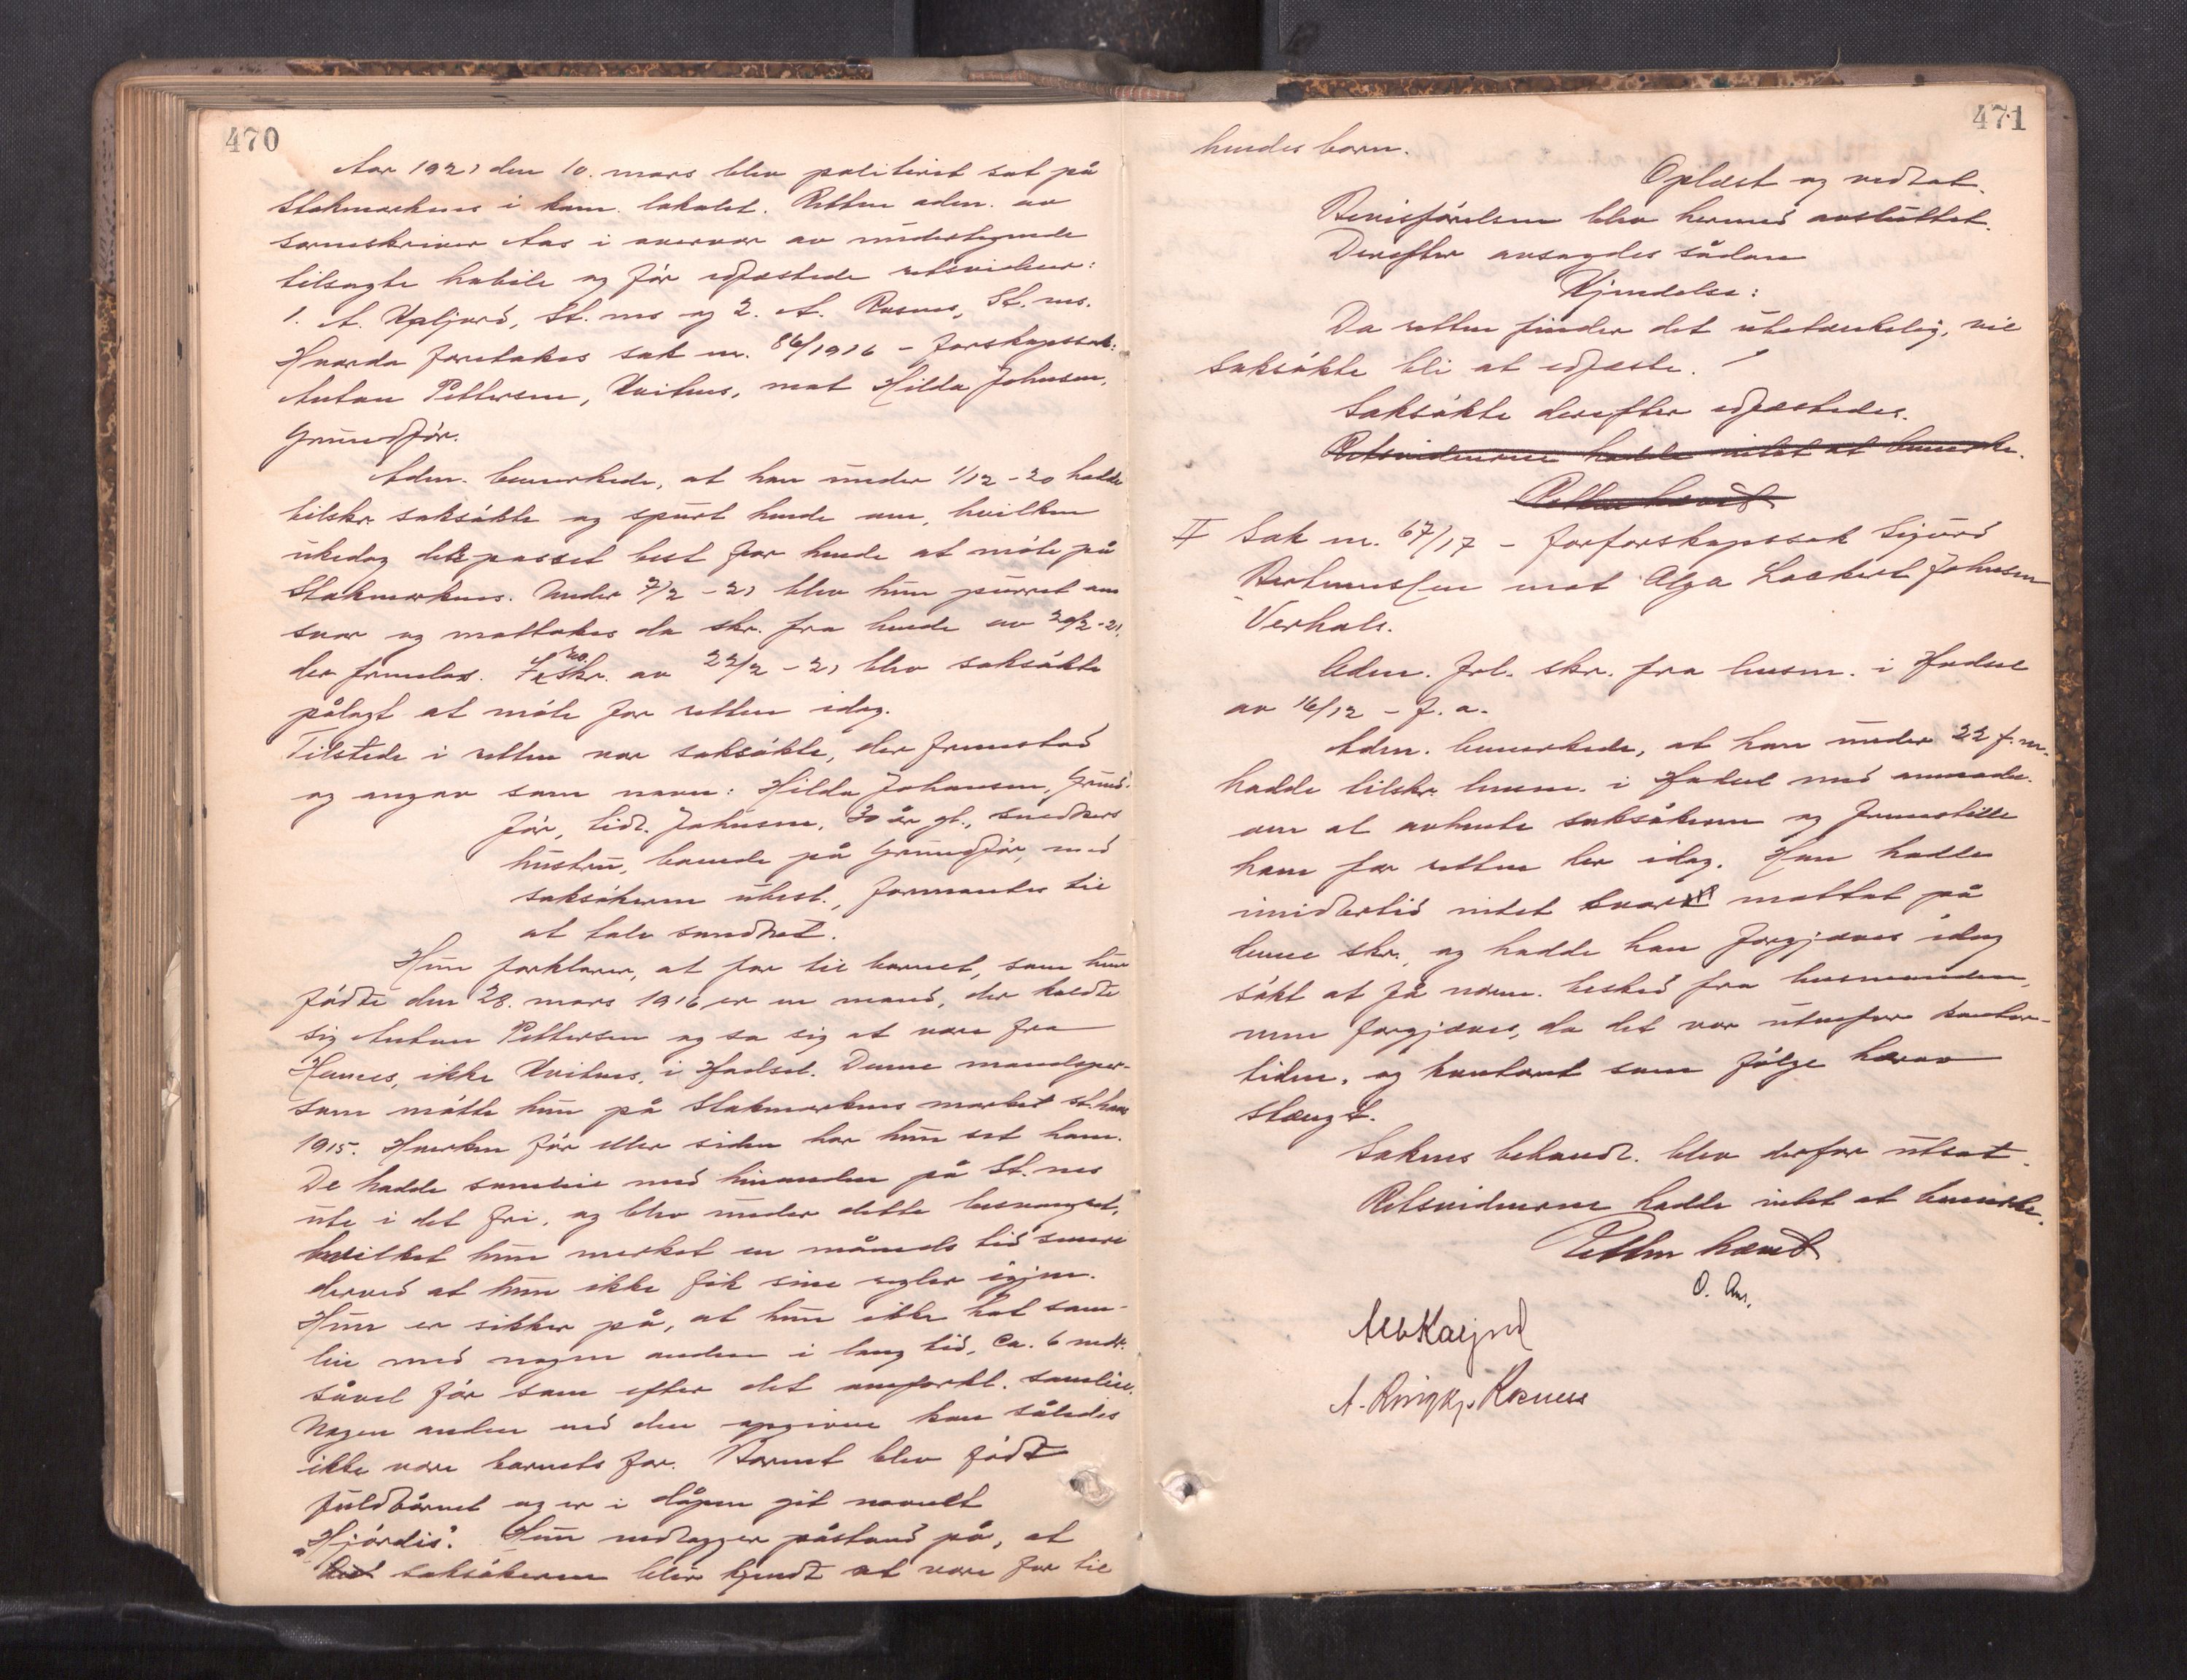 470
Aar 1921 den 10. mars blev politiret sat på
Stokmarknes i kom. lokalet. Retten adm. av
sorenskriver Aas i overvær av undertegnede
tilsagte habile og før edfæstede retsvidner:
1. A. Kaljord, St. nes og 2. A. Rosnes, St. nes.
Hvorda foretakes sak nr. 86/1916 – farskapssak:
Anton Pettersen, Kvitnes, mot Hilda Johnsen,
Grundfør.
Adm. bemerkede, at han under 1/12 – 20 hadde
tilskr. saksøkte og spurt hende om, hvilken
ukedag det passet best for hende at møte på
Stokmarknes. Under 7/2 – 21 blev hun purret om
svar og mottokes da skr. fra hende av 20/2 – 21,
der fremlas. skr. av 22/2 – 21 blev saksøkte
pålagt at møte for retten idag.
Tilstede i retten var saksøkte, der fremstod
og angav som navn: Hilda Johansen, Grund-
før, tidl. Johnsen, 30 år gl., snedkers
hustru, boende på Grundfør, med
saksøkeren ubesl., formantes til
at tale sandhet.
Hun forklarer, at far til barnet, som hun
fødte den 28. mars 1916 er en mand, der kaldte
sig Anton Pettersen og sa sig at være fra
Hannes, ikke Kvitnes, i Hadsel. Denne mandsper-
son møtte hun på Stokmarknes marked st. hans
1915. Hverken før eller siden har hun set ham.
De hadde samleie med hinanden på St. nes
ute i det fri, og blev under dette besvangret,
hvilket hun merket en måneds tid senere
derved at hun ikke fik sine regler igjen.
Hun er sikker på, at hun ikke hat sam-
leie med nogen anden i lang tid, ca. 6 mdr.
såvel før som efter det omforkl. samleie.
Nogen anden end den opgivne kan således
ikke være barnets far. Barnet blev født
fuldbårnet og er i dåpen git navnet
"Hjørdis". Hun nedlegger påstand på, at
saksøkeren blir kjendt at være far til
471
hendes barn.
Oplæst og vedtat.
Bevisførelsen blev hermed avsluttet.
Derefter avsagdes sådan
Kjendelse:
Da retten finder det ubetænkelig, vil
saksøkte bli at edfæste.
Saksøkte derefter edfæstedes.
Retsvidnerne hadde intet at bemerke.
Retten hævet
II Sak nr. 67/17 – farforskapssak Sigurd
Berthinussen mot Olga Lockert Johnsen
Verhals.
Adm. frl. skr. fra lensm. i Hadsel
av 16/12 – f. a.
Adm. bemerkede, at han under 22 f. m.
hadde tilskr. lensm. i Hadsel med anmodn.
om at avhente saksøkeren og fremstille
ham for retten her idag. Han hadde
imidlertid intet svar mottat på
denne skr., og hadde han forgjæves idag
søkt at få nærm. besked fra lensmanden,
men forgjæves, da det var utenfor kontor-
tiden, og kontoret som følge herav
stængt.
Sakens behandl. blev derfor utsat.
Retsvidnerne hadde intet at bemerke.
Retten hævet
O. Aas.
Alb Kaljord
A. Ringkj. Rosnes